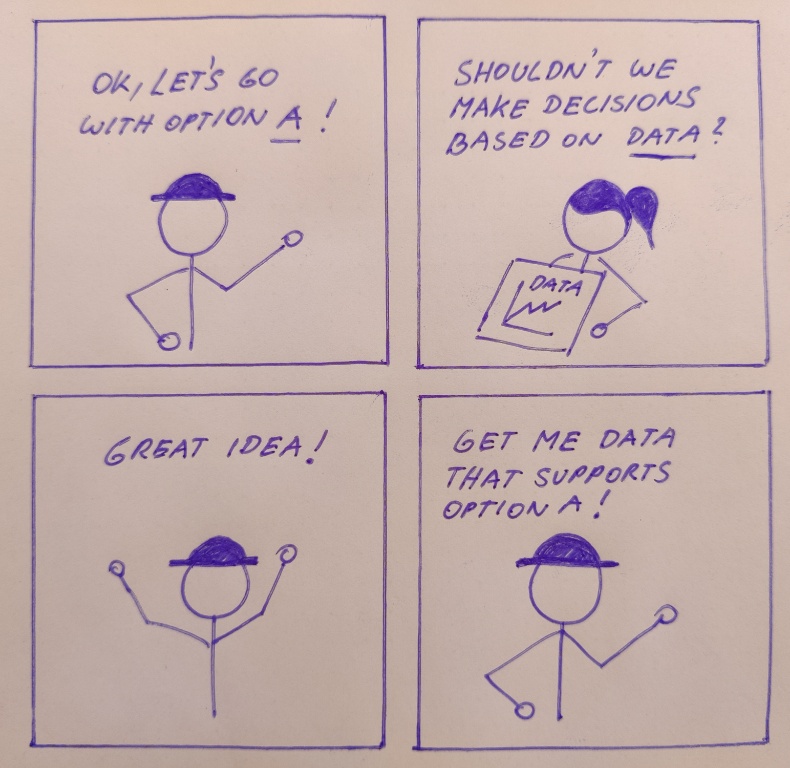 OK, LET'S GO
WITH OPTION A !
SHOULDN'T WE
MAKE DECISIONS
BASED ON DATA?
DATA
GREAT IDEA!
GET ME DATA
THAT SUPPORTS
OPTION A!